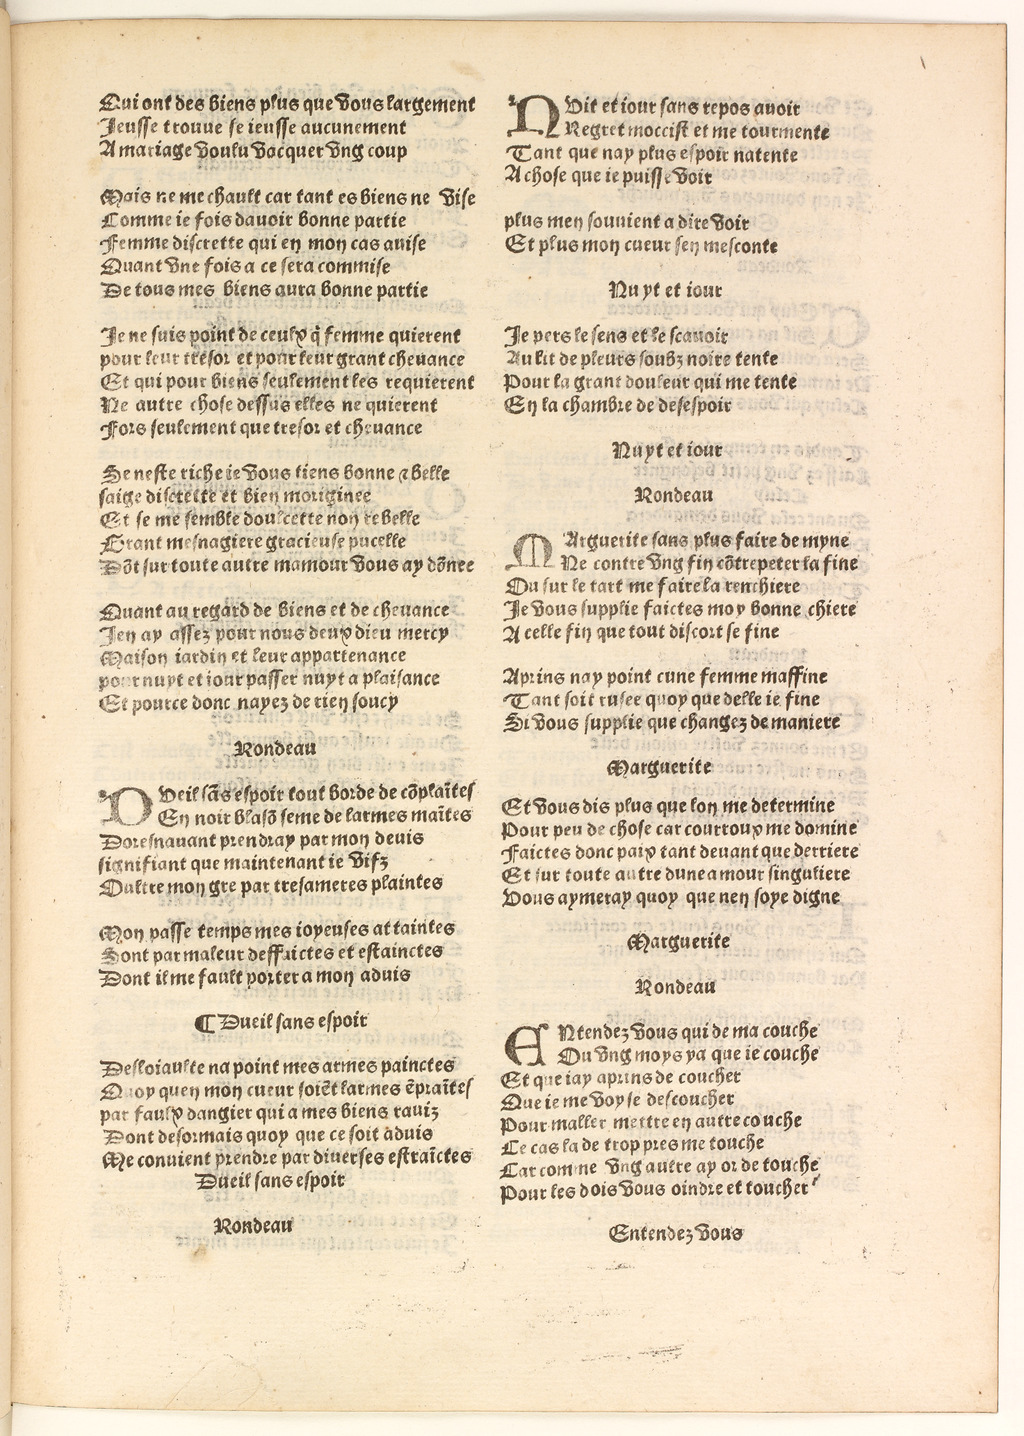 Qui ont des biens plus que vous largement
Jeusse trouue se ieusse aucunement
A mariage voulu vacquer vng coup

Mais ne me chault car tant es biens ne vise
Comme ie fois dauoir bonne partie
Femme discrette qui en mon cas auise
Quant vne fois a ce sera commise
De tous mes biens aura bonne partie

Je ne suis point de ceulx q̃ femme quierent
pour leur tresor et pour leur grant cheuance
Et qui pour biens seulement les requierent
Ne autre chose dessus elles ne quierent
Fors seulement que tresor et cheuance

Se neste riche ie vous tiens bonne ⁊ belle
saige discrette et bien moriginee
Et se me semble doulcette non rebelle
Grant mesnagiere gracieuse pucelle
Dõt sur toute autre mamour vous ay dõnee

Quant au regard de biens et de cheuance
Jen ay assez pour nous deux dieu mercy
Maison iardin et leur appartenance
pour nuyt et iour passer nuyt a plaisance
Et pource donc nayez de rien soucy

Rondeau

Dveil sãs espoir tout borde de cõplaĩtes
En noir blasõ seme de larmes maĩtes
Doresnauant prendray par mon deuis
signifiant que maintenant ie vifz
Oultre mon gre par tresameres plaintes

Mon passe temps mes ioyeuses attaintes
Sont par maleur deffaictes et estainctes
Dont il me fault porter a mon aduis

¶ Dueil sans espoir

Desloiaulte na point mes armes painctes
Quoy quen mon cueur soiẽt larmes ẽpraĩtes
par faulx dangier qui a mes biens rauiz
Dont desormais quoy que ce soit aduis
Me conuient prendre par diuerses estraĩctes
Dueil sans espoir

Rondeau

Nvit et iour sans repos auoir
Regret moccist et me tourmente
Tant que nay plus espoir natente
A chose que ie puisse voir

plus men souuient a dire voir
Et plus mon cueur sen mesconte

Nuyt et iour

Je pers le sens et le scauoir
Au lit de pleurs soubz noire tente
Pour la grant douleur qui me tente
En la chambre de desespoir

Nuyt et iour

Rondeau

Marguerite sans plus faire de myne
Ne contre vng fin cõtrepeter la fine
Ou sur le tart me faire la renchiere
Je vous supplie faictes moy bonne chiere
A celle fin que tout discort se fine

Aprins nay point cune femme maffine
Tant soit rusee quoy que delle ie fine
Si vous supplie que changez de maniere

Marguerite

Et vous dis plus que lon me determine
Pour peu de chose car courroux me domine
Faictes donc paix tant deuant que derriere
Et sur toute autre dune amour singuliere
Vous aymeray quoy que nen soye digne

Marguerite

Rondeau

Entendez vous qui de ma couche
Ou vng moys ya que ie couche
Et que iay aprins de coucher
Que ie me voyse descoucher
Pour maller mettre en autre couche
Le cas la de trop pres me touche
Car comme vng autre ay or de touche
Pour les dois vous oindre et toucher

Entendez vous